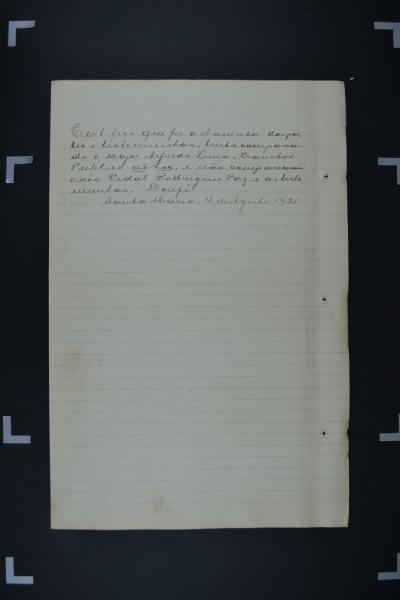 Certifico que fiz a chamada das par-
tes e testemunhas, tendo compareci-
do o Major Alfredo Luna, Promotor
Publico ad-hoc, e não compareceram
o réo Vidal Rodrigues Paz e as teste-
munhas. Dou fé
Santa Maria, 4 de Agosto 1921